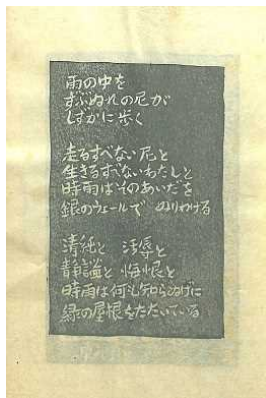 雨の中を
ずぶぬれの尼が
しずかに歩く
走るすべない尼と
生きるすべないわたしと
時雨はそのあいだを
銀のヴェールで ぬりわける
清純と 汚辱と
静謐と 悔恨と
時雨は何も知らぬげに
緑の屋根をたたいている